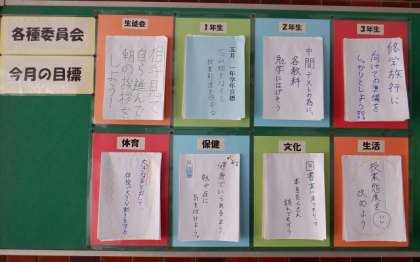 各種委員会
今月の目標
生徒会
相手見て
自ら進んで
朝の挨拶を
しよう!
1年生
五月 一年学年目標
2年生
中間テストの為に、
各教科
勉学にはげもう
3年生
修学旅行に
向けての準備を
しっかりとしよう
体育
保健
健康でいられるよう
気を付けよう
文化
図書室に
本をたくさん
読んでもらう
生活
授業態度を
改めよう